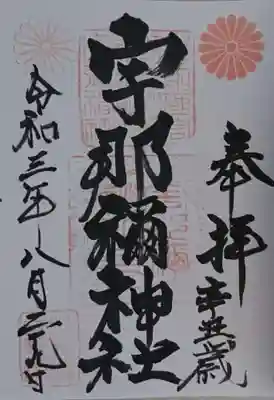 奉拝
辛丑歳
宇那禰神社
令和三年八月二九日